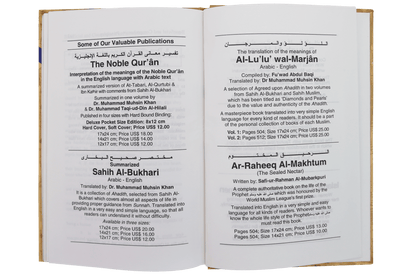 Some of Our Valuable Publications
تفسير معانى القرآن الكريم باللغة الإنجليزية
The Noble Qur'ân
Interpretation of the meanings of the Noble Qur'ân
in the English language with Arabic text
A summarized version of At-Tabari, Al-Qurtubi &
Ibn Kathir with comments from Sahih Al-Bukhari
Summarized in one volume by
Dr. Muhammad Muhsin Khan
& Dr. Muhammad Taqi-ud-Din Al-Hilali
Published in four sizes with Hard Bound Binding:
Deluxe Pocket Size Edition: 8x12 cm
Hard Cover, Soft Cover; Price US$ 12.00
17x24 cm; Price US$ 25.00
14x21 cm; Price US$ 18.00
12x17 cm; Price US$ 12.00
مختصر صحيح البخارى
Summarized
Sahih Al-Bukhari
Arabic - English
Translated by: Dr. Muhammad Muhsin Khan
It is a collection of Ahadith, selected from Sahih Al-
Bukhari which covers almost all aspects of life in
providing proper guidance from Sunnah. Translated into
English in a very easy and simple language, so that all
readers can understand it without difficulty.
Available in three sizes:
17x24 cm; Price US$ 20.00
14x21 cm; Price US$ 16.00
12x17 cm; Price US$ 12.00
اللؤلؤ والمرجان
The translation of the meanings of
Al-Lu'lu' wal-Marjân
Arabic - English
Compiled by: Fu'wad Abdul Baqi
Translated by: Dr Muhammad Muhsin Khan
A selection of Agreed upon Ahadith in two volumes
from Sahih Al-Bukhari and Sahih Muslim,
which has been titled as 'Diamonds and Pearls'
due to the value and authenticity of the Ahadith.
A masterpiece book translated into very simple English
language for every kind of readers. It should be a part
of the personal collection of books of each Muslim.
Vol. 1: Pages 504; Size 17x24 cm; Price US$ 25.00
Vol. 2: Pages 512; Size 17x24 cm; Price US$ 25.00
الرحيق المختوم
Ar-Raheeq Al-Makhtum
(The Sealed Nectar)
Written by: Safi-ur-Rahman Al-Mubarkpuri
A complete authoritative book on the life of the
Prophet which was honoured by the
World Muslim League's first prize.
Translated into English in a very simple and easy
language for all kinds of readers. Whoever wants to
know the whole life style of the Prophet
must read this book.
Pages 504, Size 17x24 cm; Price US$ 13.00
Pages 504, Size 14x21 cm; Price US$ 10.00